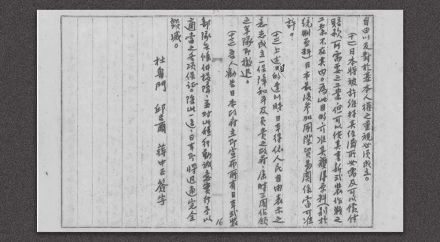 自由以及對於基本人權之重視必須成立。
(十一)日本將被許維持其經濟所必需及可以償付
賠款所需要之工業但可以使其重新武裝作戰之
工業不在其內。為此目的可准其獲得原料(別於
統制原料)日本最後參加國際貿易關係當可准
許。
(十二)上述目的達到時日本得依人民自由表示之
意志成立一傾向和平及負責之政府,屆時三國佔領
之軍隊即撤退。
(十三)吾人勸告日本政府立即宣布所有日本武裝
部隊無條件投降,並對此種行動誠意實行予以
適當之各項保證。除此一途,日本即將迅速完全
毀滅。
杜魯門 邱吉爾 蔣中正 簽字
16